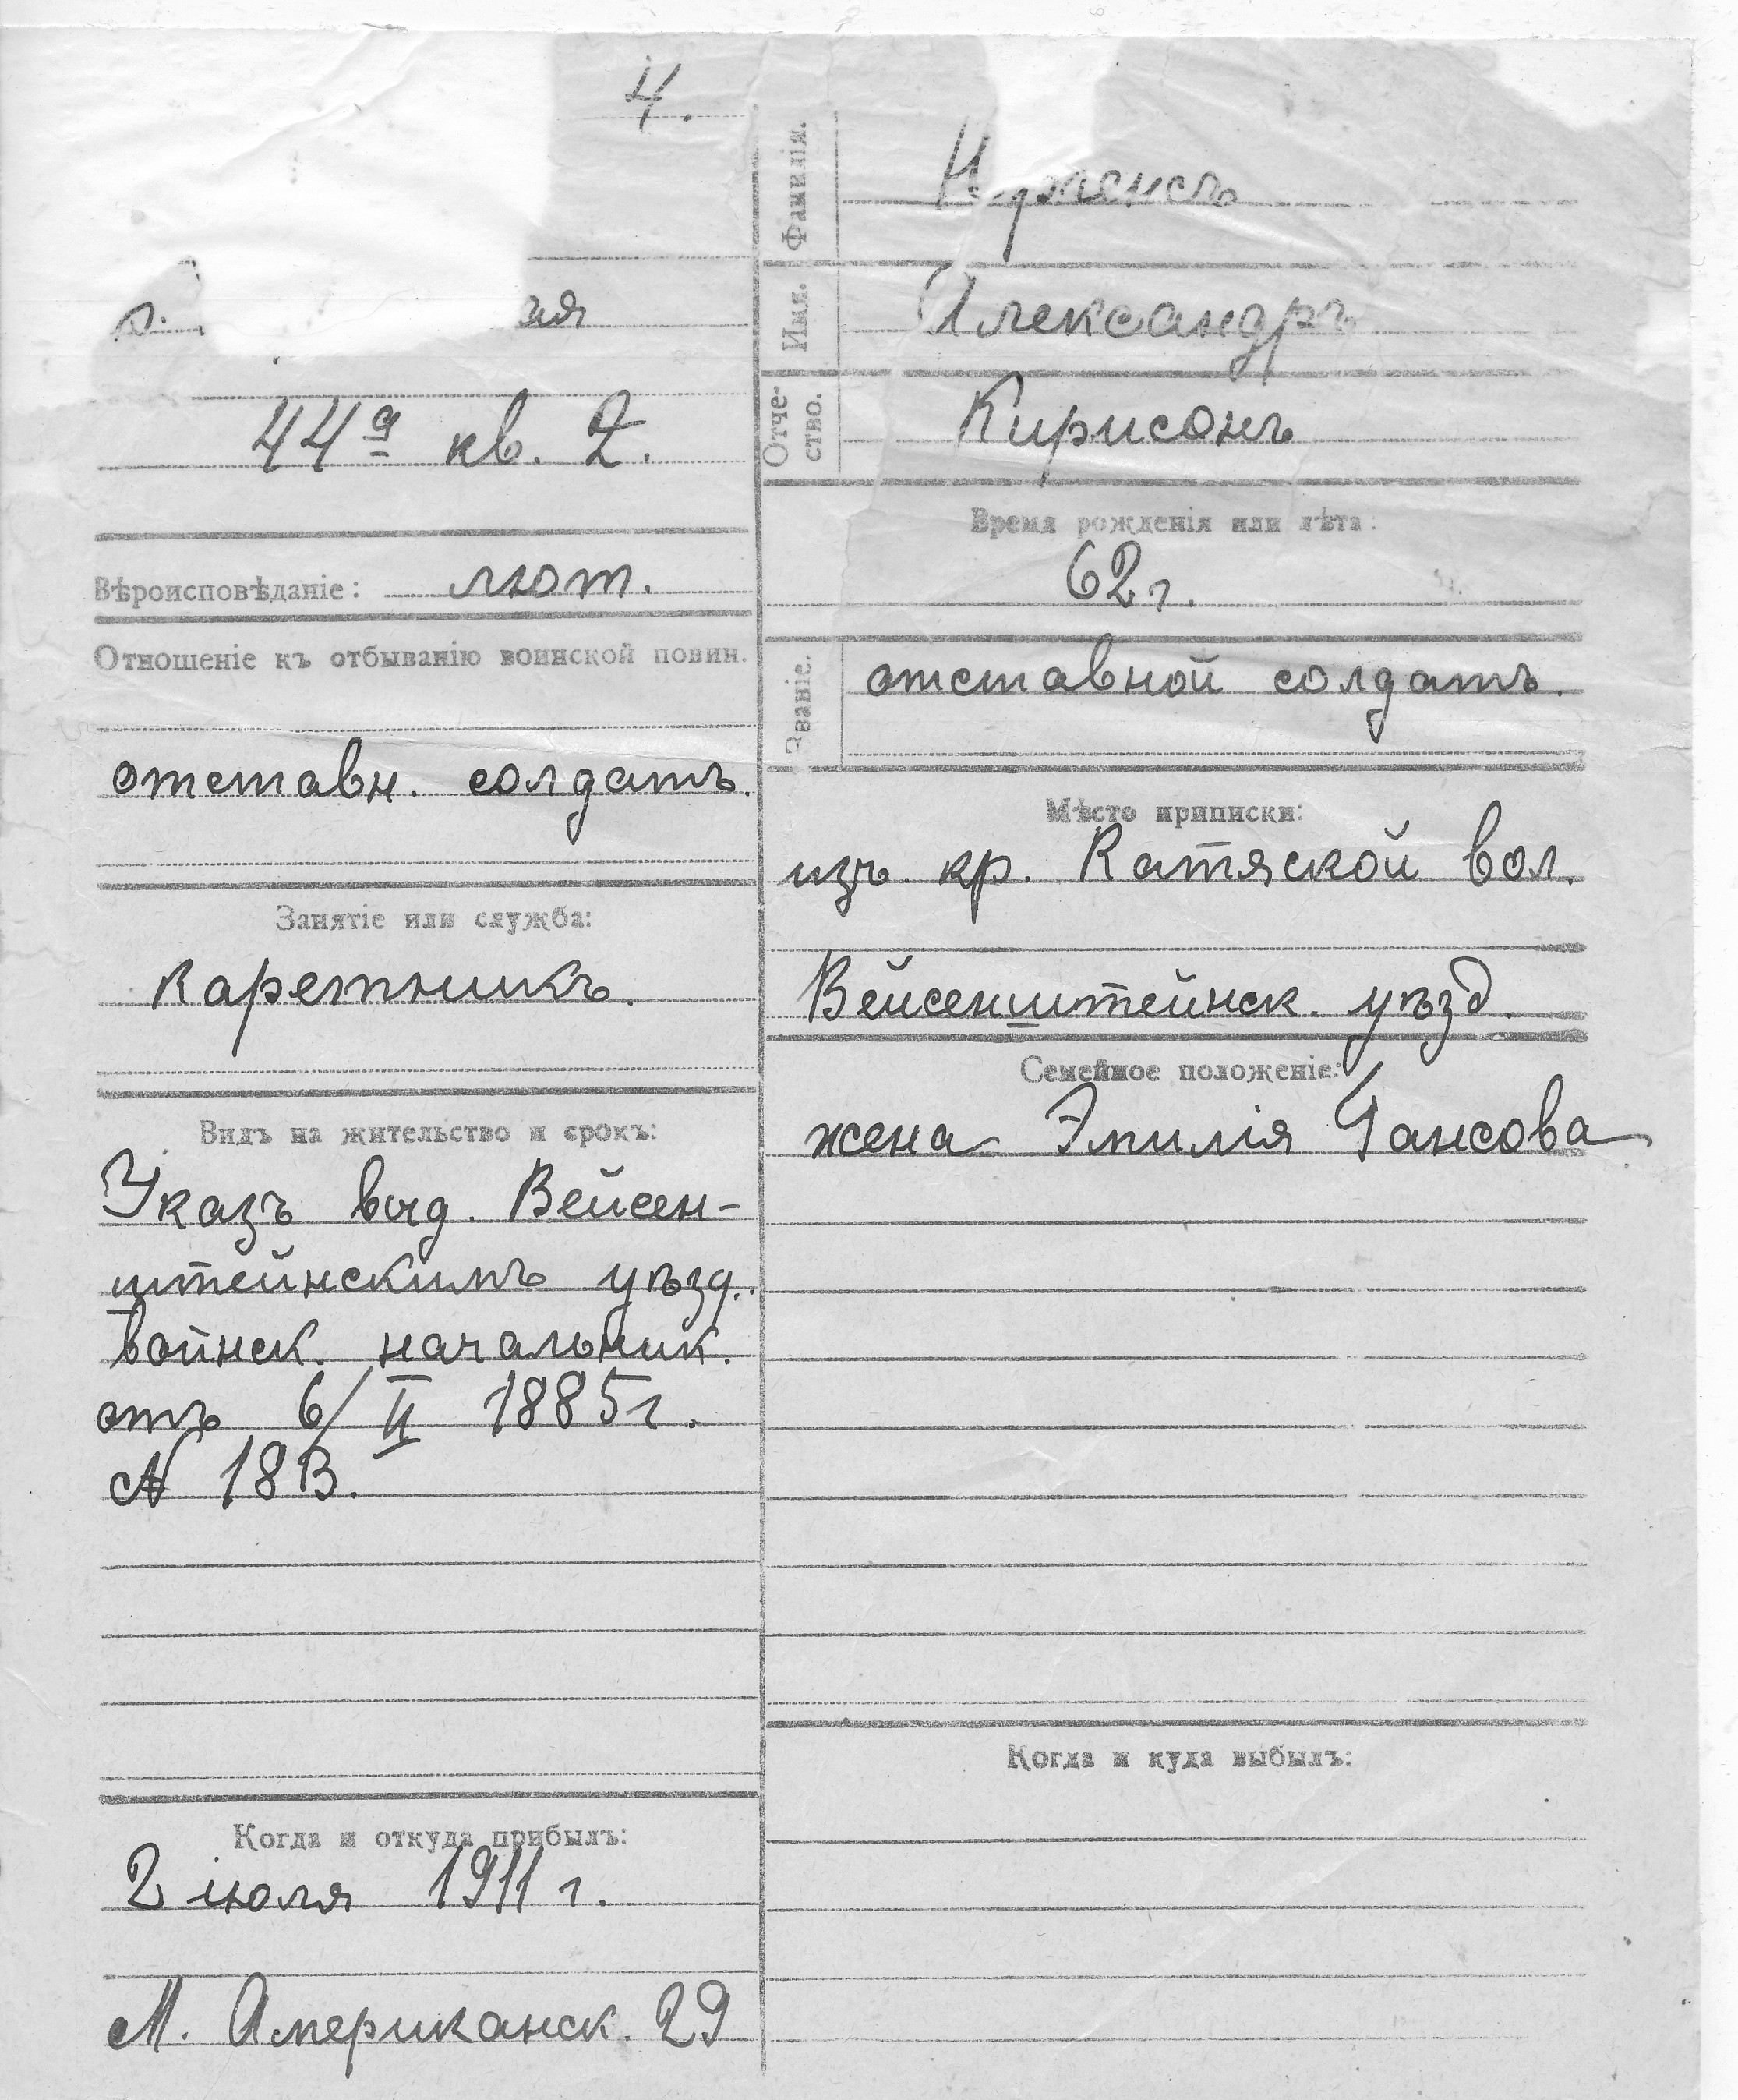 4.
ая
44а кв. 2.
Вѣроисповѣданіе: лют.
Отношеніе къ отбыванію воинской повин.
отставн. солдатъ.
Занятіе или служба:
Каретникъ.
Видъ на жительство и срокъ:
Указъ выд. Вейсен-
штейнскимъ уѣзд.
воинск. начальник.
отъ 6/II 1885г.
N 18В.
Когда и откуда прибылъ:
2 іюля 1911 г.
М. Американск. 29
Фамилія.
Имя. Александръ
Отче-
ство. Кирисонъ
Время рожденія или лѣта:
62 г.
Званіе. отставной солдатъ.
Мѣсто приписки:
изъ кр. Катяской вол.
Вейсенштейнск. уѣзд.
Семейное положеніе:
жена Эмилія Гансова
Когда и куда выбылъ: